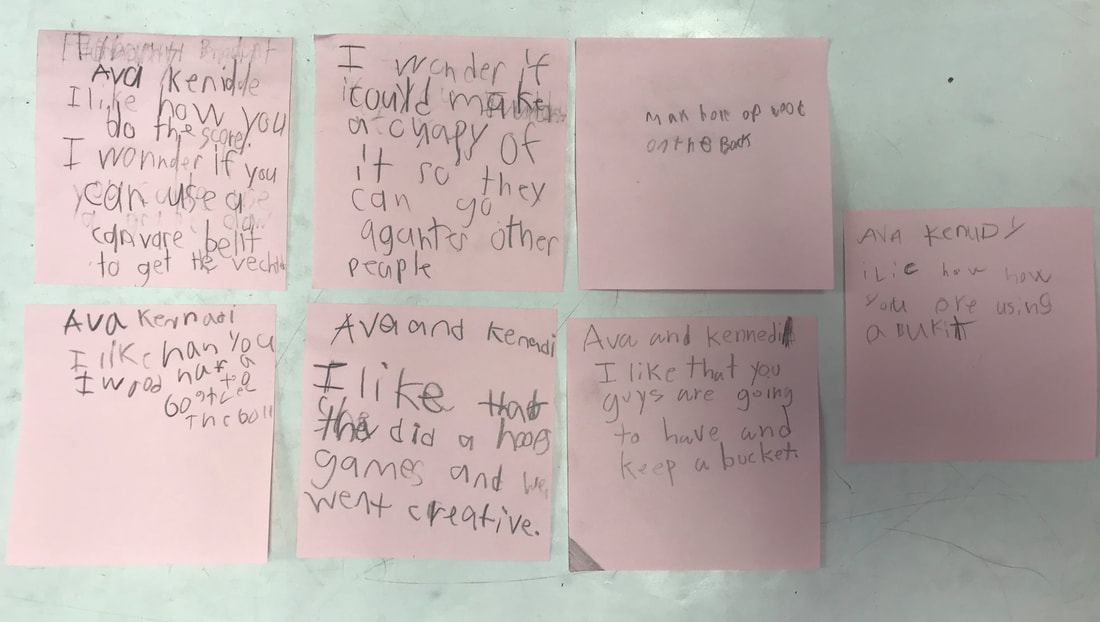 Ava Kenidde
I like how you
do the score.
I wonnder if you
can use a
canvare belit
to get the
I wonder if
could make
a chapy of
it so they
can go
aganter other
people
man hole op
on the Back
Ava Kennadi
I like han you
I wood
to
the ball
Ava and Kenadi
I like that
the did a hoops
games and
went creative.
Ava and kennedi
I like that you
guys are going
to have and
keep a bucket.
AVA KENUDY
iLic how how
you are using
a BUKit